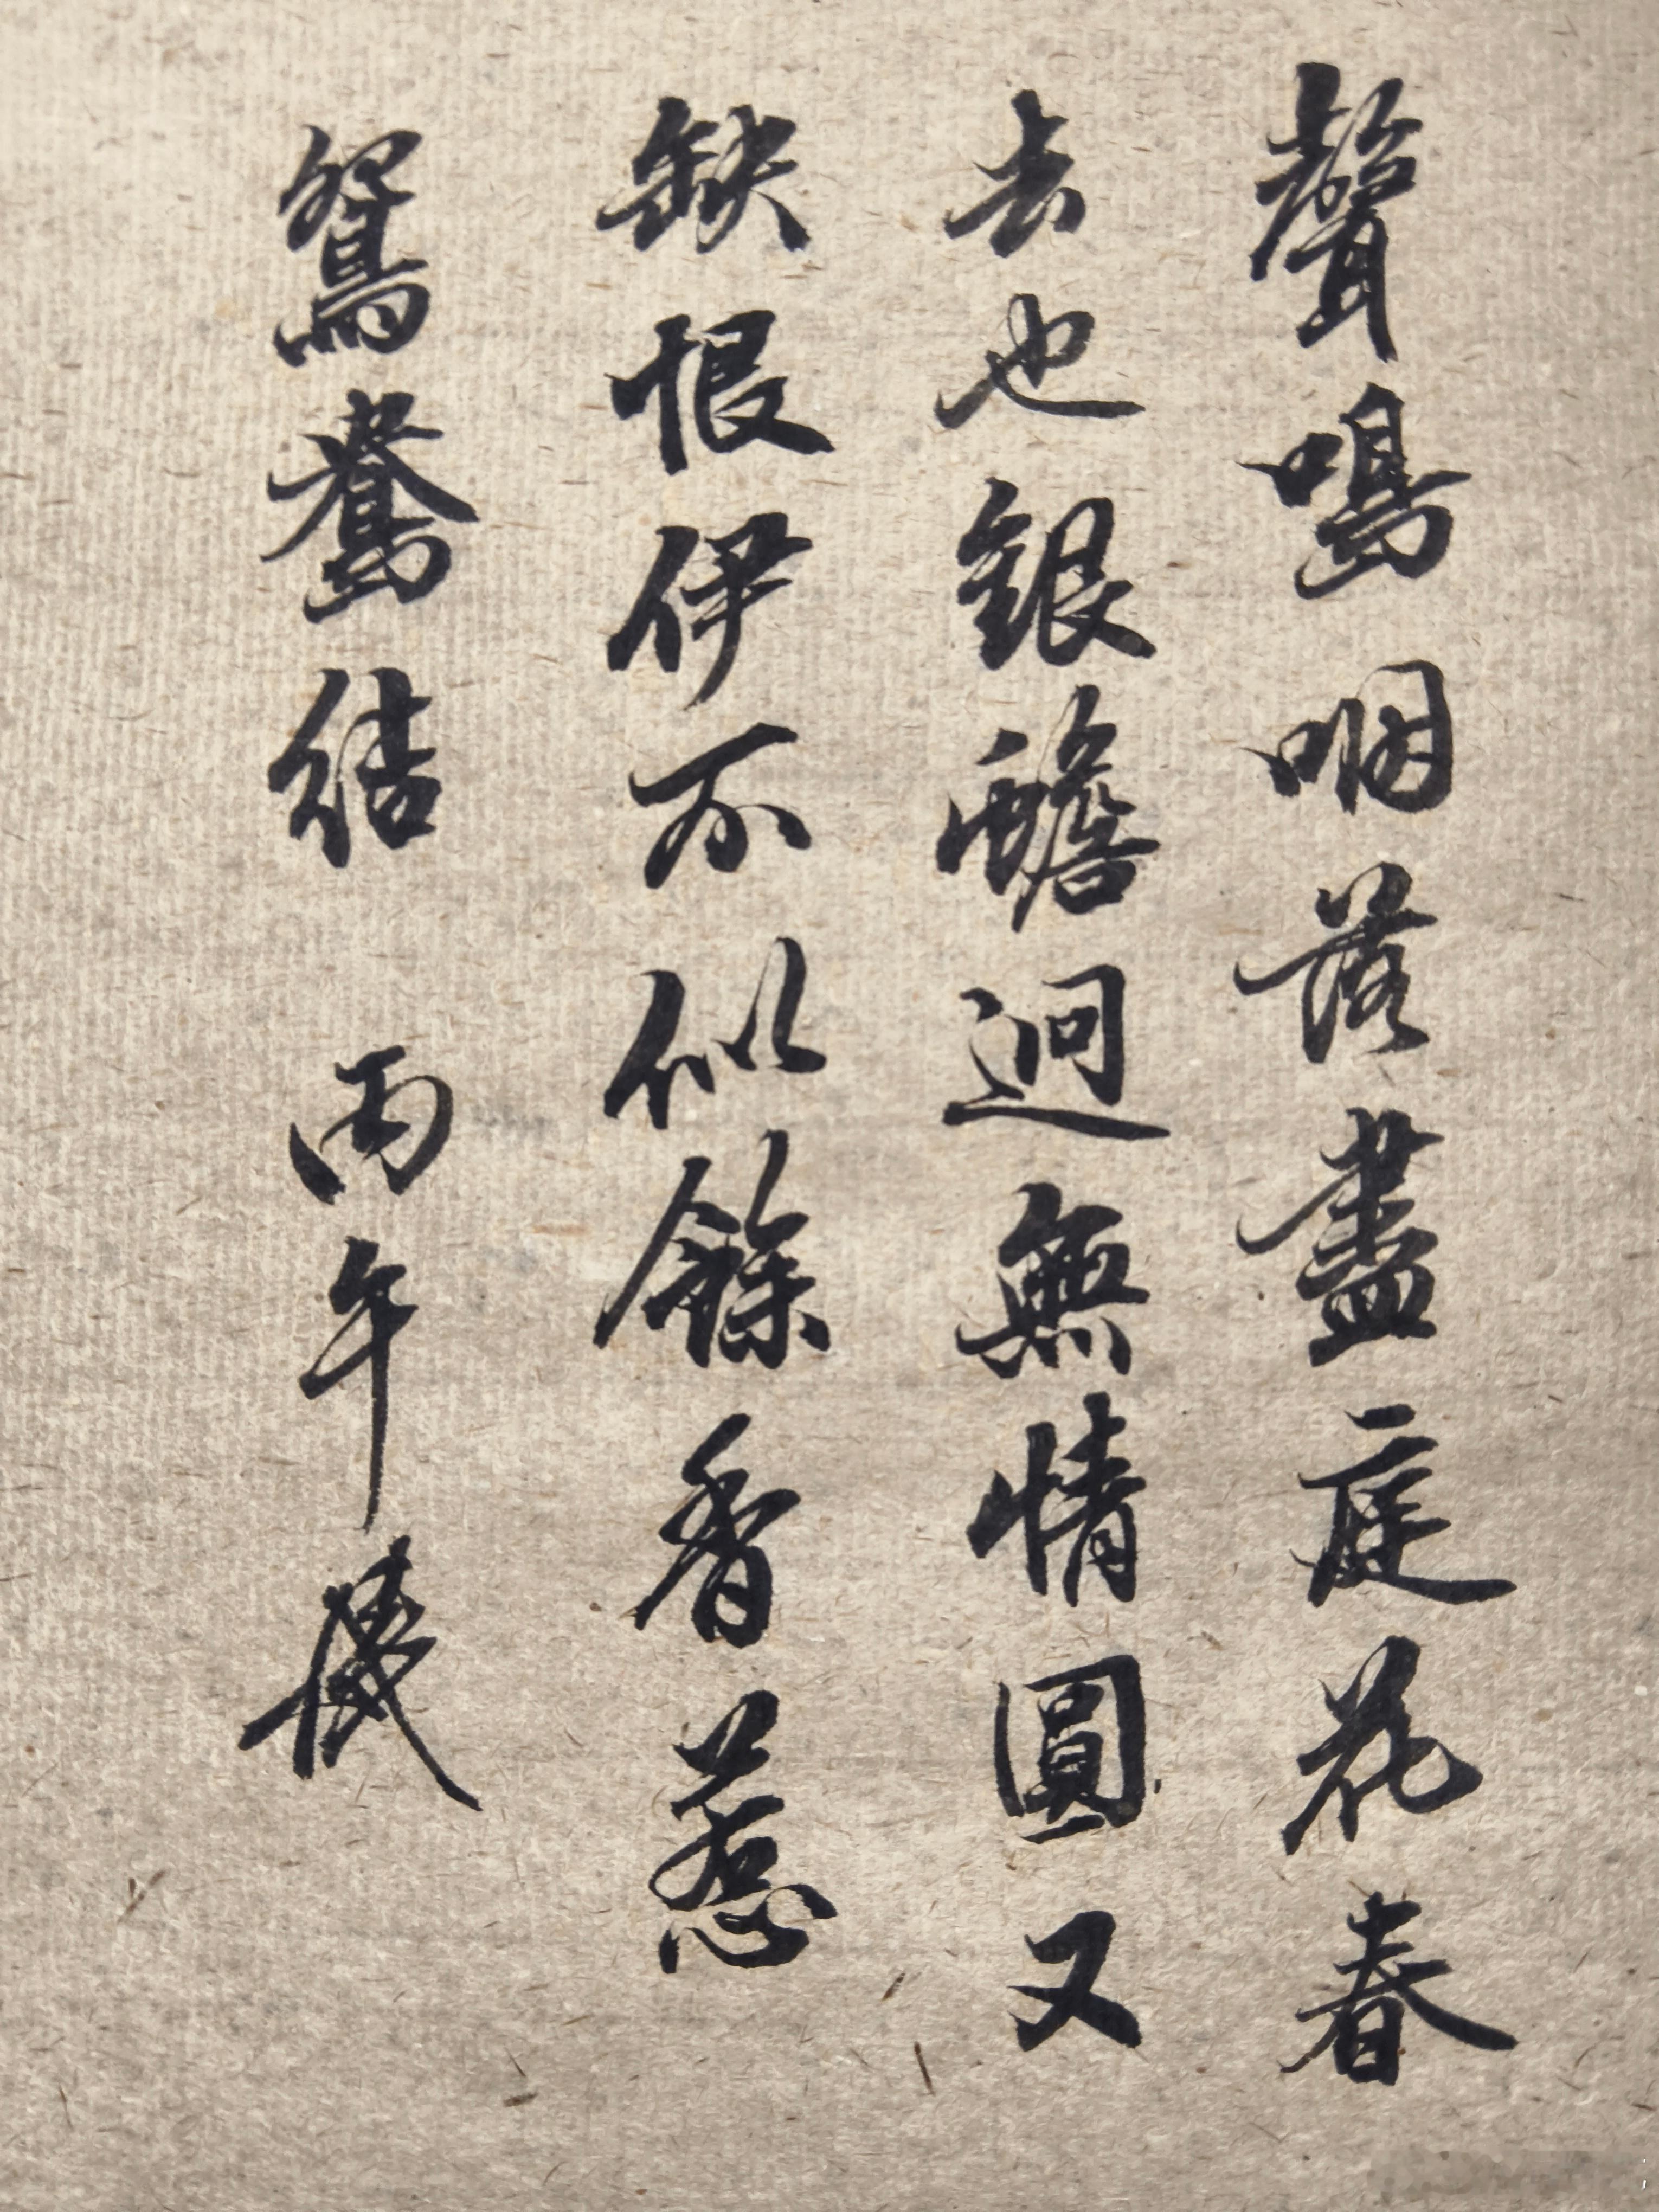 聲鳴咽落盡庭花春
去也銀蟾迥無情圓又
缺恨伊不似餘香惹
鴛鴦結 丙午儀